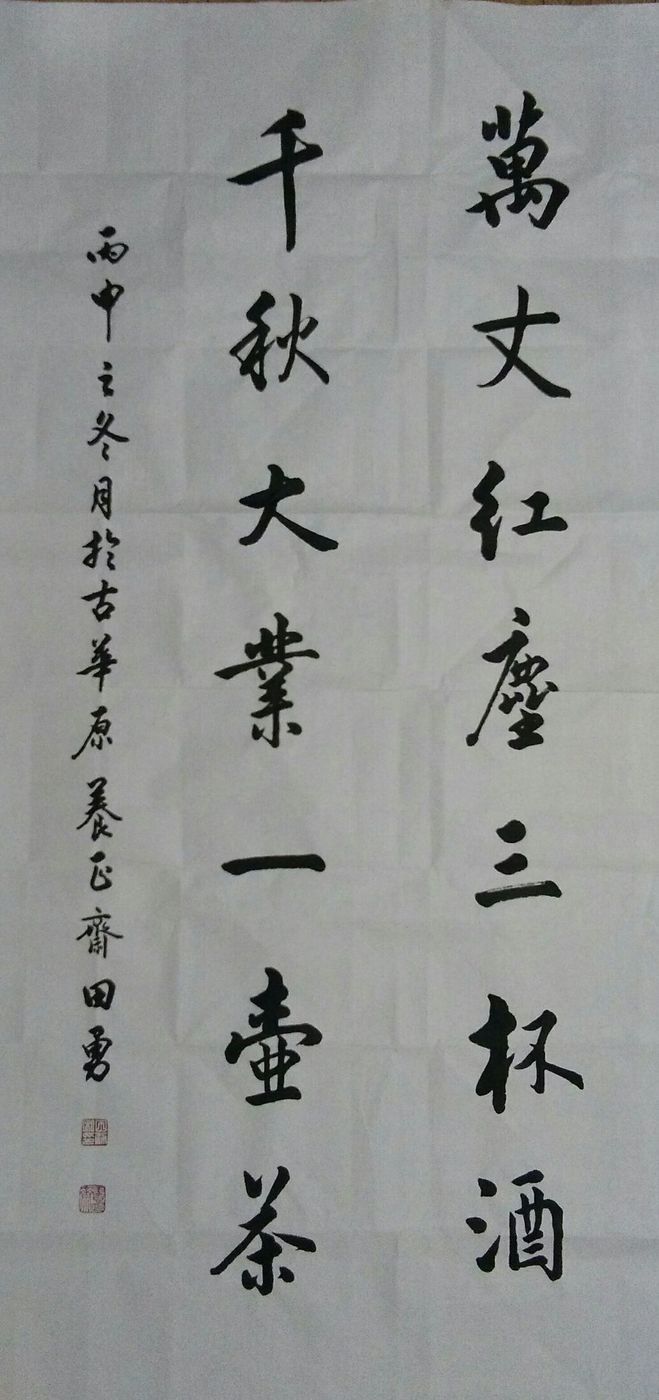 萬丈红塵三杯酒
千秋大業一壺茶
丙申之冬月於古華原養正齋田勇